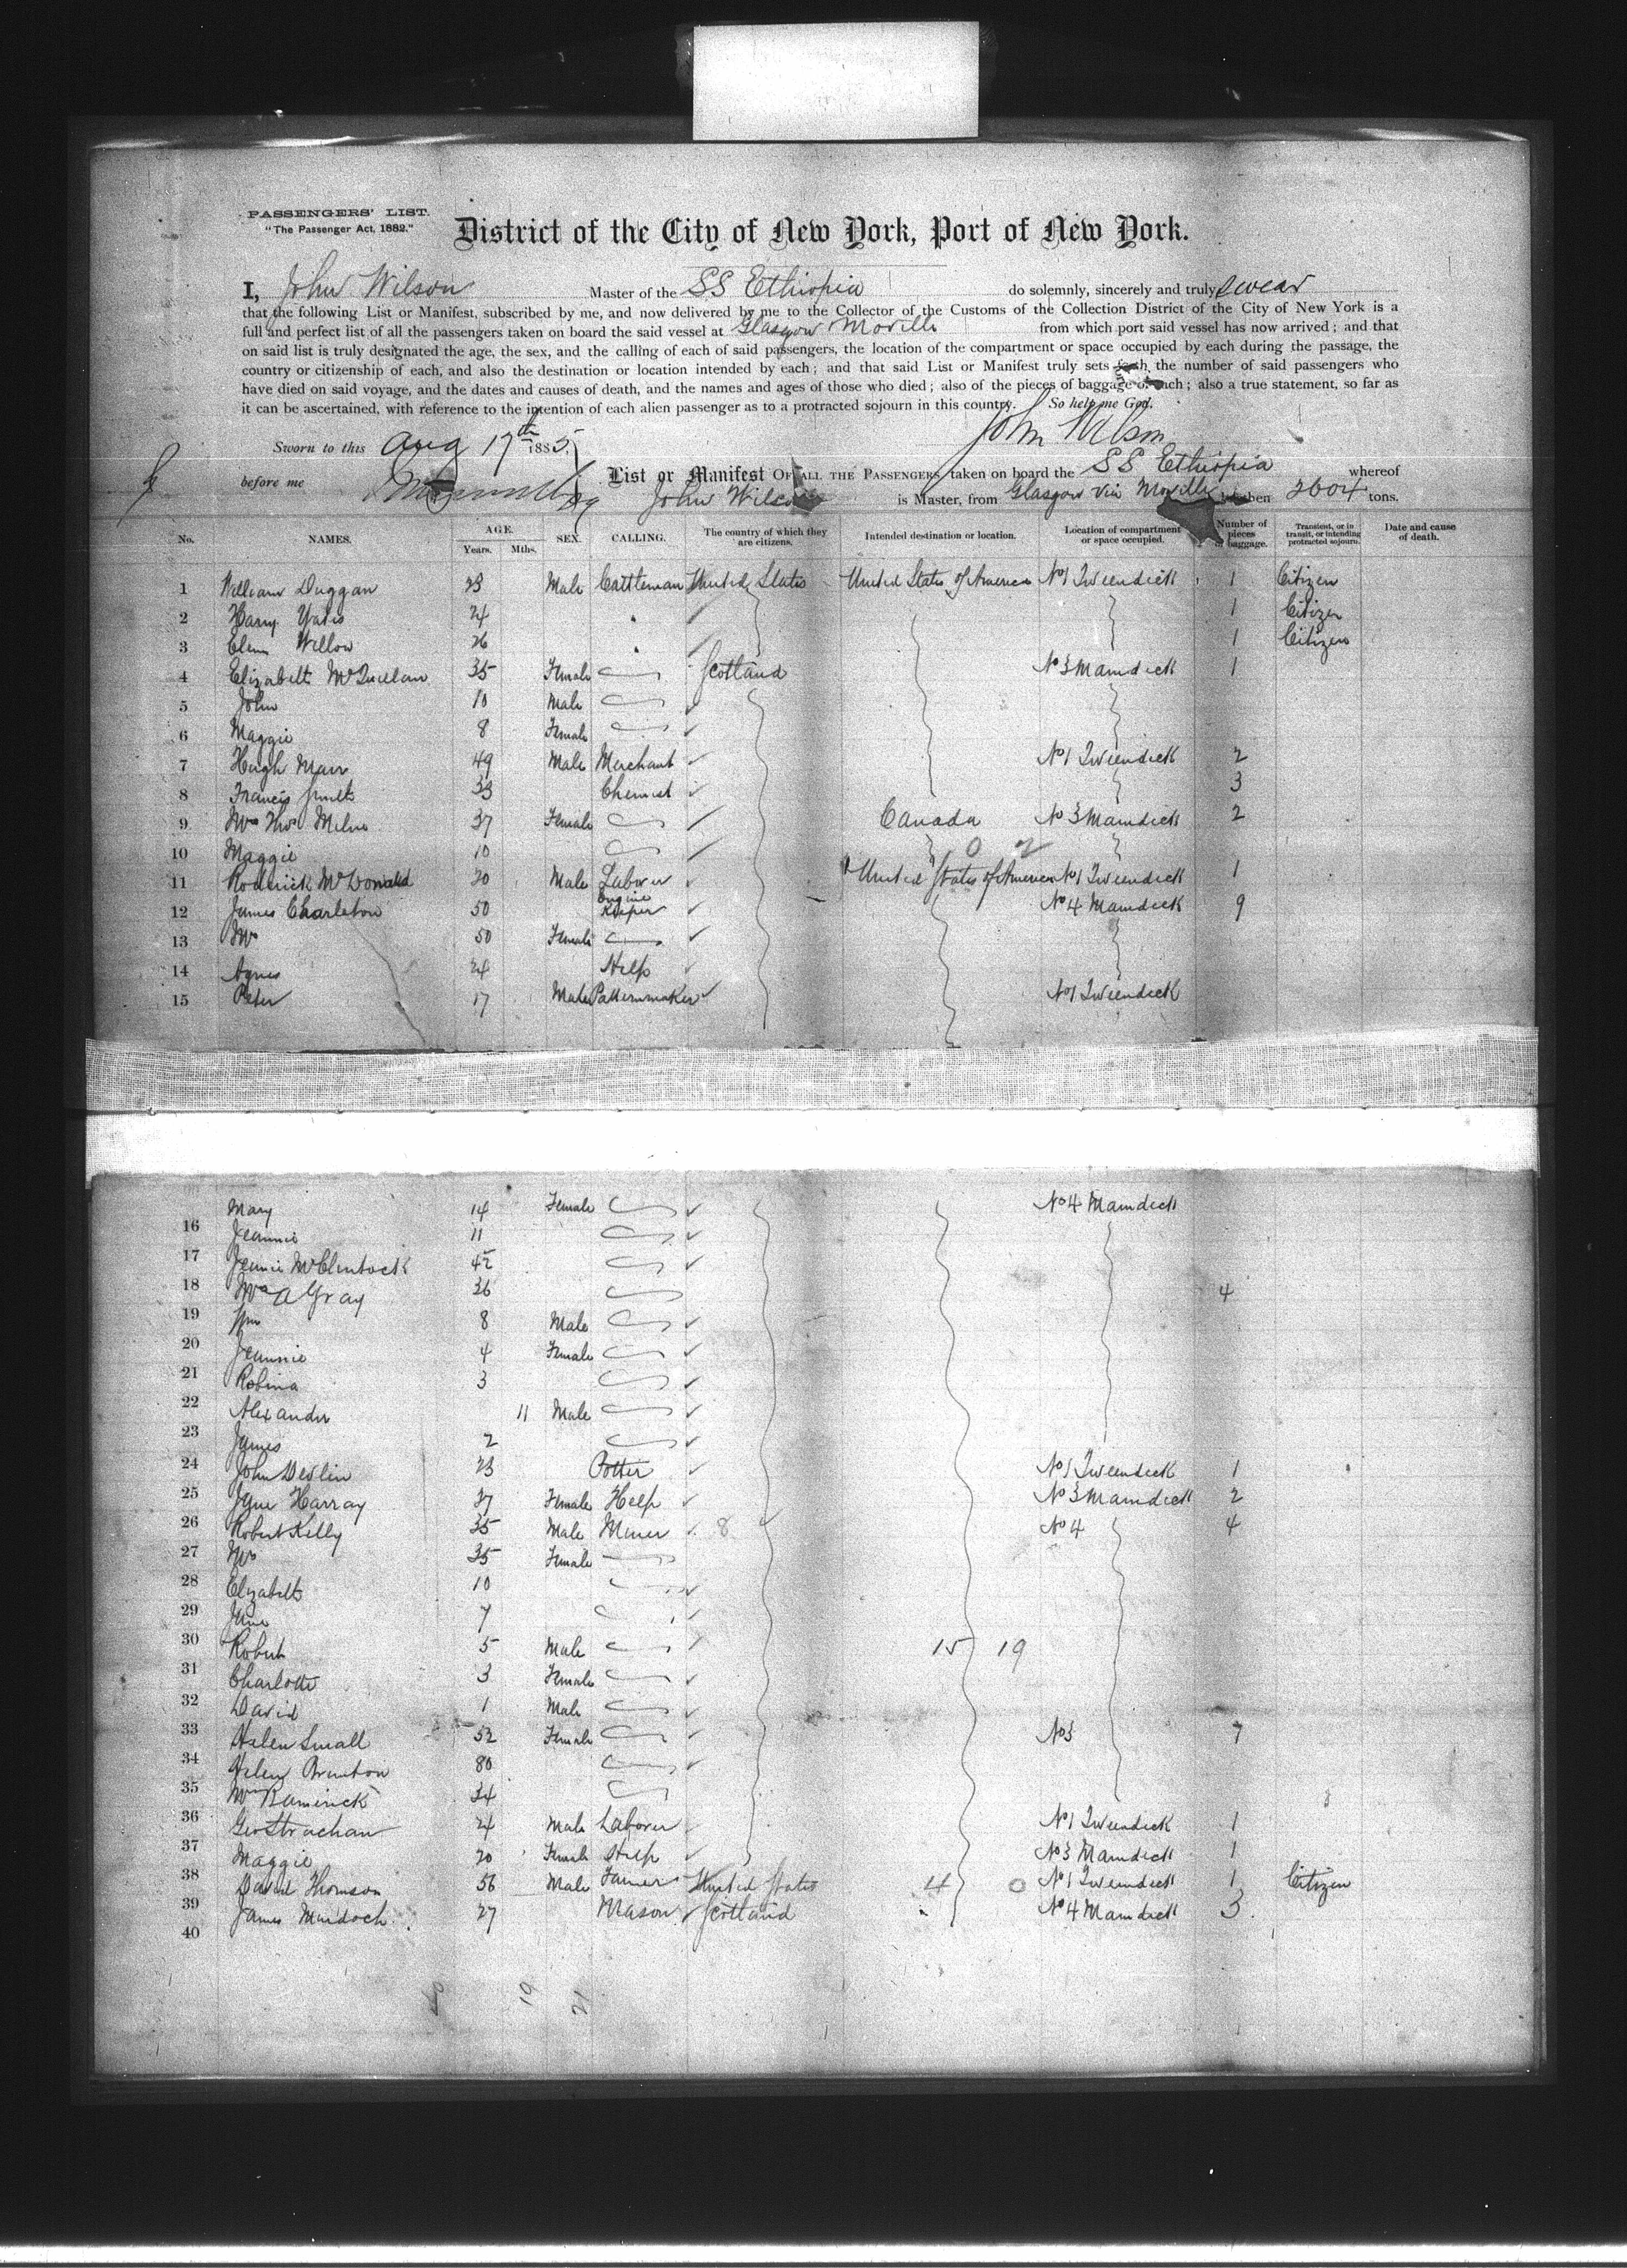 PASSENGERS' LIST.
"The Passenger Act, 1882."
District of the City of New York, Port of New York.
I, John Wilson Master of the SS Ethiopia do solemnly, sincerely and truly swear
that the following List or Manifest, subscribed by me, and now delivered by me to the Collector of the Customs of the Collection District of the City of New York is a
full and perfect list of all the passengers taken on board the said vessel at Glasgow Moville from which port said vessel has now arrived; and that
on said list is truly designated the age, the sex, and the calling of each of said passengers, the location of the compartment or space occupied by each during the passage, the
country or citizenship of each, and also the destination or location intended by each; and that said List or Manifest truly sets forth the number of said passengers who
have died on said voyage, and the dates and causes of death, and the names and ages of those who died; also of the pieces of baggage of each; also a true statement, so far as
it can be ascertained, with reference to the intention of each alien passenger as to a protracted sojourn in this country. So help me God.
Sworn to this Aug 17th 1885 John Wilson
before me
List or Manifest OF ALL THE PASSENGERS taken on board the SS Ethiopia whereof
John Wilson is Master, from Glasgow via Moville burthen 2604 tons.
No. NAMES. AGE. Years. Mths. SEX. CALLING. The country of which they are citizens. Intended destination or location. Location of compartment or space occupied. Number of pieces of baggage. Transient, or in transit, or intending protracted sojourn. Date and cause of death.
1 William Duggan 23 Male Cattleman United States United States of America No 1 Tweendeck 1 Citizen
2 Harry Yates 24 1 Citizen
3 Clem Willow 26 1 Citizen
4 Elizabeth McQuillan 35 Female Scotland No 3 Maindeck 1
5 John 10 Male
6 Maggie 8 Female
7 Hugh Marr 49 Male Merchant No 1 Tweendeck 2
8 Francis Smith 33 Chemist 3
9 Mrs Thos Milne 37 Female Canada No 3 Maindeck 2
10 Maggie 10 0 2
11 Roderick McDonald 20 Male Labourer United States of America No 1 Tweendeck 1
12 James Charleton 50 Engine Keeper No 4 Maindeck 9
13 Mrs 50 Female
14 Agnes 24 Help
15 Peter 17 Male Patternmaker No 1 Tweendeck
Mary 14 Female No 4 Maindeck
16 Jeannie 11
17 Jennie McClintock 42
18 Mrs A Gray 36 4
19 Wm 8 Male
20 Jeannie 4 Female
21 Robina 3
22 Alexander 11 Male
23 James 2
24 John Devlin 23 Potter No 1 Tweendeck 1
25 Jane Harray 37 Female Help No 3 Maindeck 2
26 Robert Kelly 35 Male Miner 8 No 4 4
27 Mrs 35 Female
28 Elizabeth 10
29 Jane 7
30 Robert 5 Male 15 19
31 Charlotte 3 Female
32 David 1 Male
33 Helen Small 52 Female No 3 7
34 Helen Brunton 80
35 34
36 Geo Strachan 24 Male Laborer No 1 Tweendeck 1
37 Maggie 20 Female Help No 3 Maindeck 1
38 David Thomson 56 Male Farmer United States 4 0 No 1 Tweendeck 1 Citizen
39 James Murdoch 27 Mason Scotland No 4 Maindeck 3
40
19 21